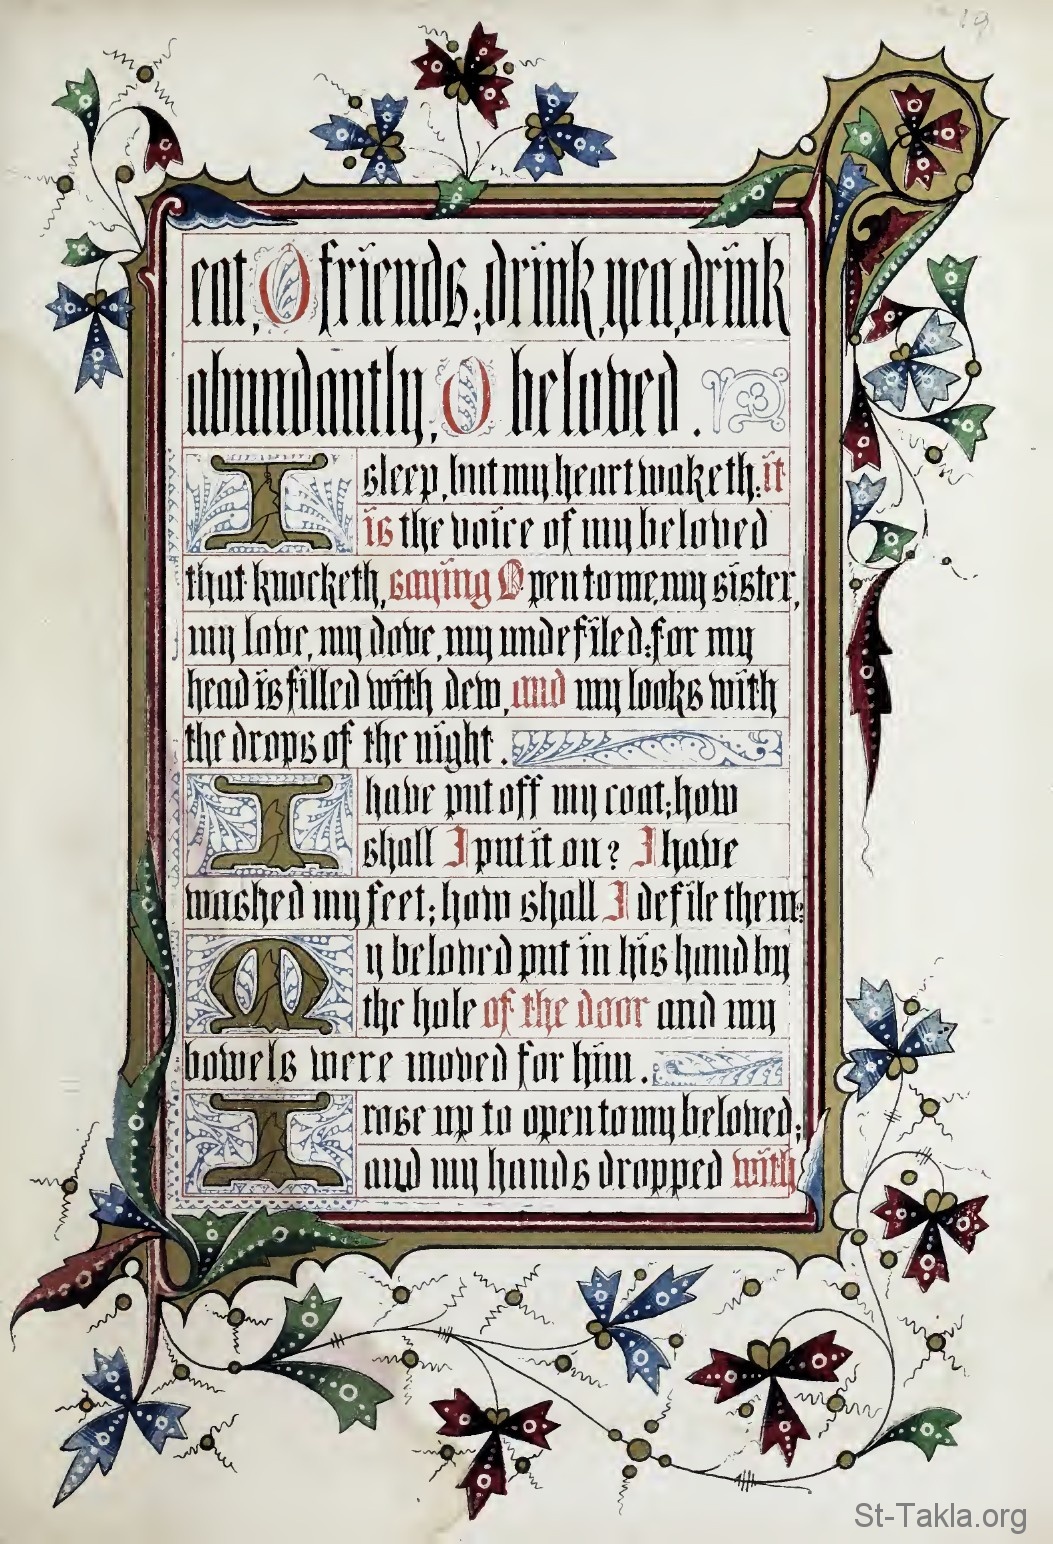 19
eat, O friends; drink, yea, drink
abundantly, O beloved.
I sleep, but my heart waketh: it
is the voice of my beloved
that knocketh, saying Open to me, my sister,
my love, my dove, my undefiled: for my
head is filled with dew, and my locks with
the drops of the night.
I have put off my coat; how
shall I put it on? I have
washed my feet; how shall I defile them?
My beloved put in his hand by
the hole of the door and my
bowels were moved for him.
I rose up to open to my beloved;
and my hands dropped with
St-Takla.org